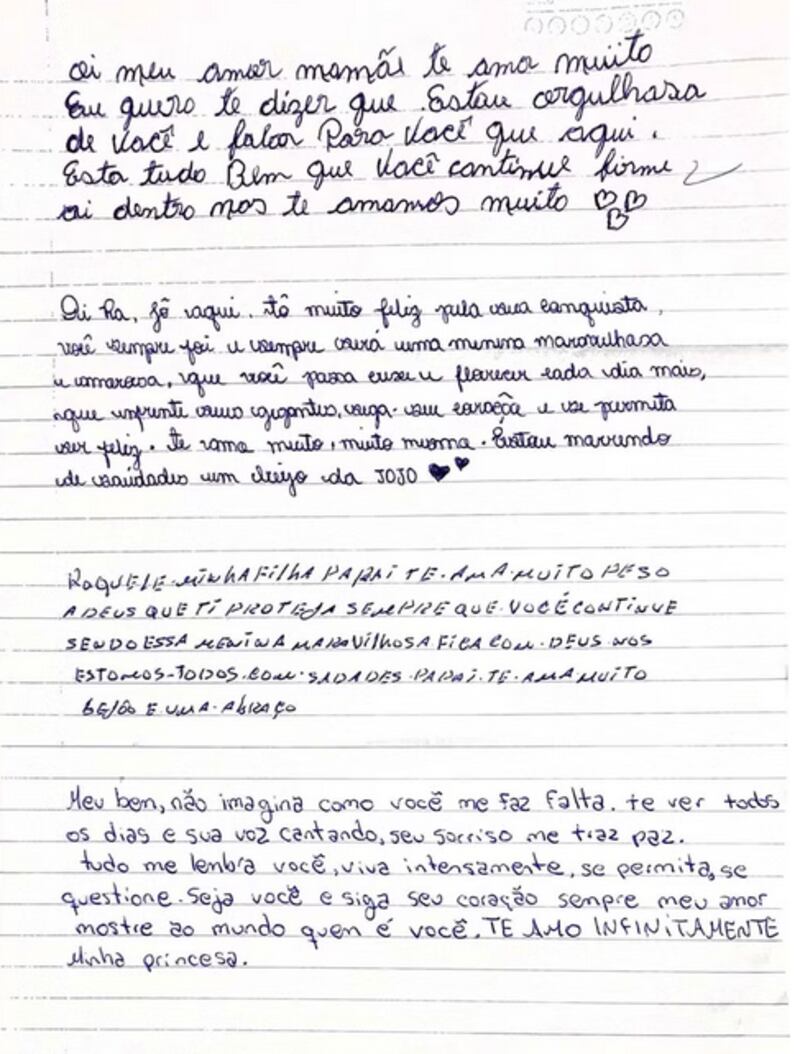 oi meu amor mamãe te ama muiito
Eu quero te dizer que Estou orgulhosa
de você e falar Para você que aqui.
Esta tudo Bem que você continue firme
ai dentro nos te amamos muito
Oi Ra, Jô aqui. tô muito feliz pela sua conquista,
você sempre foi e sempre será uma menina maravilhosa
e amorosa, que você possa e florecer cada dia mais,
que enfrente seus gigantes, siga seu coração e se permita
ser feliz. te amo muito, muito mesmo. Estou morrendo
de saudades um beijo da JOJO
RAQUELE. MINHA FILHA PAPAI TE. AMA. MUITO PESO
A DEUS QUE TI PROTEJA SEMPRE QUE. VOCÉ CONTINUE
SENDO ESSA MENINA MARAVILHOSA FICA COM. DEUS NOS
ESTOMOS-TODOS. COM. SADADES. PAPAI. TE. AMA MUITO
BEJÕO E UMA. ABRAÇO
Meu bem, não imagina como você me faz falta. te ver todos
os dias e sua voz cantando, seu sorriso me traz paz.
tudo me lembra você, viva intensamente, se permita, se
questione. Seja você e siga seu coração sempre meu amor
mostre ao mundo quem é você. TE AMO INFINITAMENTE
Minha princesa.